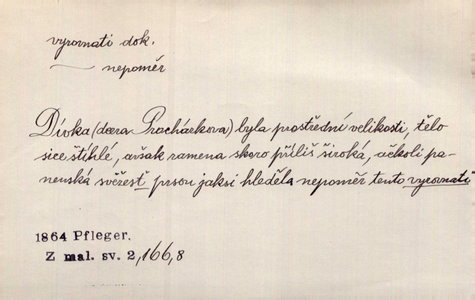 vyrovnati dok.
— nepoměr
Dívka (dcera Prachárkova) byla prostřední velikosti, tělo
sice štíhlé, avšak ramena skoro příliš široká, ačkoli pa-
nenská svěžesť prsou jaksi hleděla nepoměr tento vyrovnati
1864 Pfleger,
Z mal. sv. 2,166,8